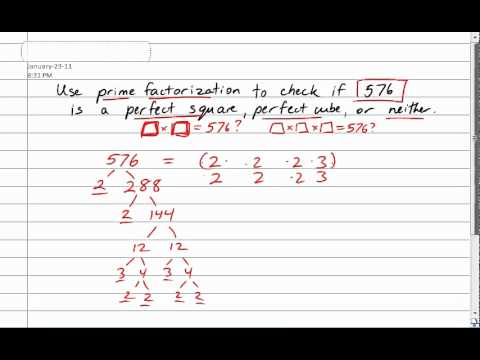 January-23-11
8:31 PM
Use prime factorization to check if 576
is a perfect square, perfect cube, or neither.
□×□=576? □×□×□=576?
576 = (2· ·2 ·2·3)
2 2 ·2 3
2 288
2 144
12 12
3 4 3 4
2 2 2 2